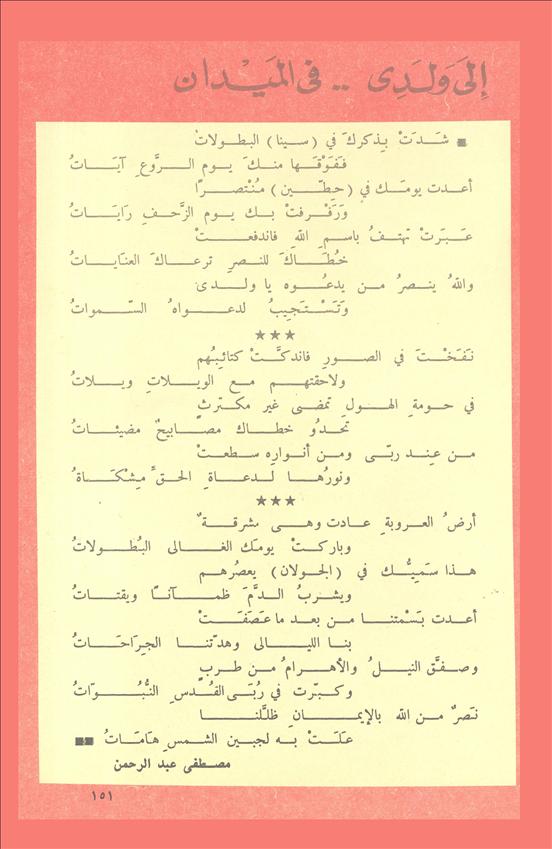 إلى ولدى .. فى الميدان
شدت بذكرك في (سينا) البطولات
ففوقها منك يوم الروع آيات
أعدت يومك في (حطين) منتصرا
ورفرفت بك يوم الزحف رايات
عبرت تهتف باسم الله فاندفعت
خطاك للنصر ترعاك العنايات
والله ينصر من يدعوه يا ولدى
وتستجيب لدعواه السموات
★★★
نفخت في الصور فاندكت كتائبهم
ولاحقتهم مع الويلات ويلات
في حومة الهول تمضى غير مكترث
تحدو خطاك مصابيح مضيئات
من عند ربى ومن أنواره سطعت
ونورها لدعاة الحق مشكاة
★★★
أرض العروبة عادت وهى مشرقة
وباركت يومك الغالى البطولات
هذا سميك في (الجولان) يعصرهم
ويشرب الدم ظمآنا ويقتات
أعدت بسمتنا من بعد ما عصفت
بنا الليالى وهدتنا الجراحات
وصفق النيل والأهرام من طرب
وكبرت في ربى القدس النبوات
نصر من الله بالإيمان ظللنا
علت به لجبين الشمس هامات
مصطفى عبد الرحمن
١٥١